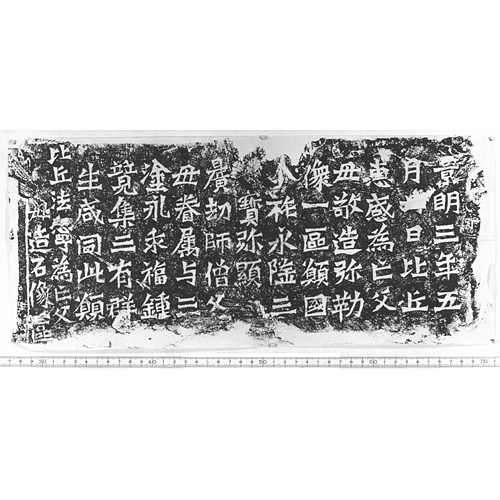 景明三年五
月卅日比丘
惠感為亡父
母敬造弥勒
像一區願國
祚永隆三
寶弥顯
曠劫師僧父
母眷属与三
塗永乖福鍾
竟集三有群
生咸同此願
比丘法寧為亡父
母造石像一區
30 40 50 60 70